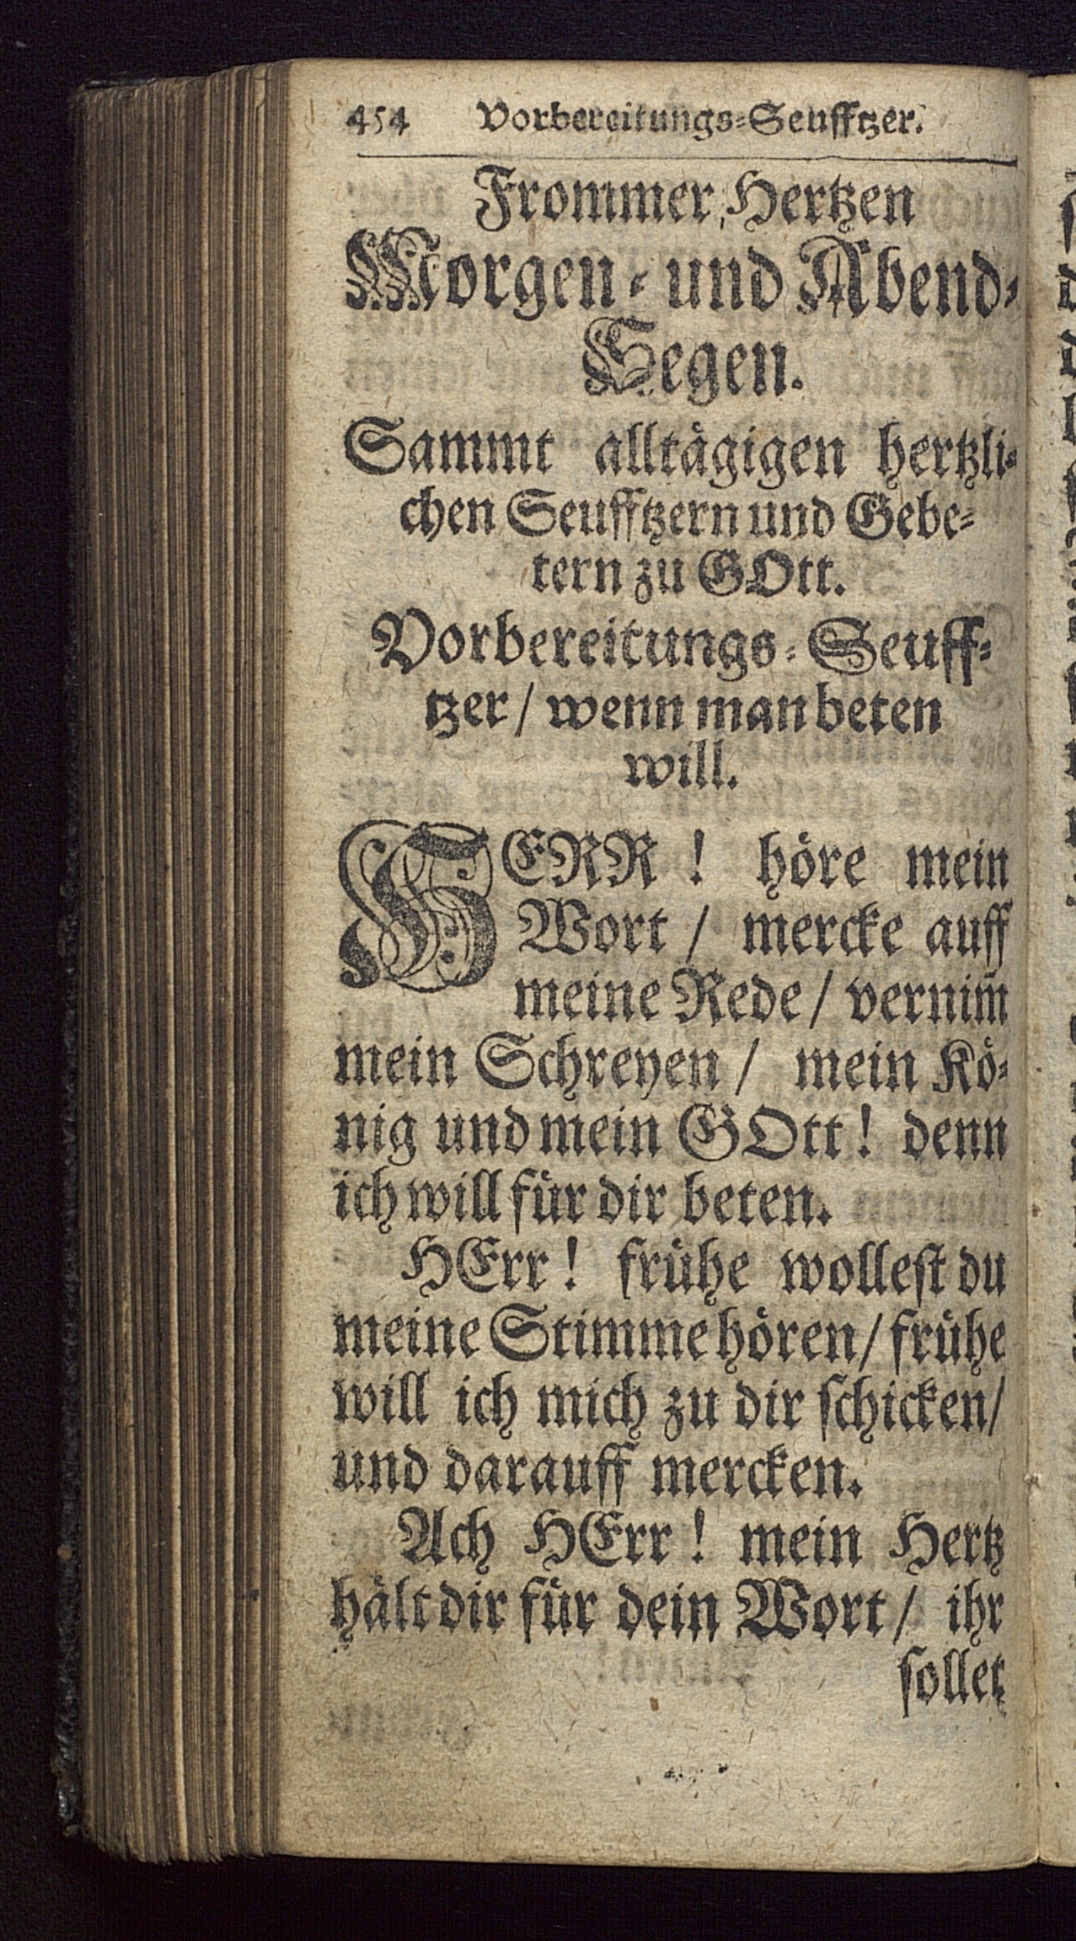 454 Vorbereitungs-Seufftzer.
Frommer Hertzen
Morgen- und Abend-
Segen.
Sammt alltägigen hertzli-
chen Seufftzern und Gebe-
tern zu GOtt.
Vorbereitungs-Seuff-
tzer / wenn man beten
will.
HERR ! höre mein
Wort / mercke auff
meine Rede / vernim̃
mein Schreyen / mein Kö-
nig und mein GOtt! denn
ich will für dir beten.
HErr! frühe wolleſt du
meine Stimme hören / frühe
will ich mich zu dir ſchicken /
und darauff mercken.
Ach HErr! mein Hertz
hält dir für dein Wort / ihr
ſollet